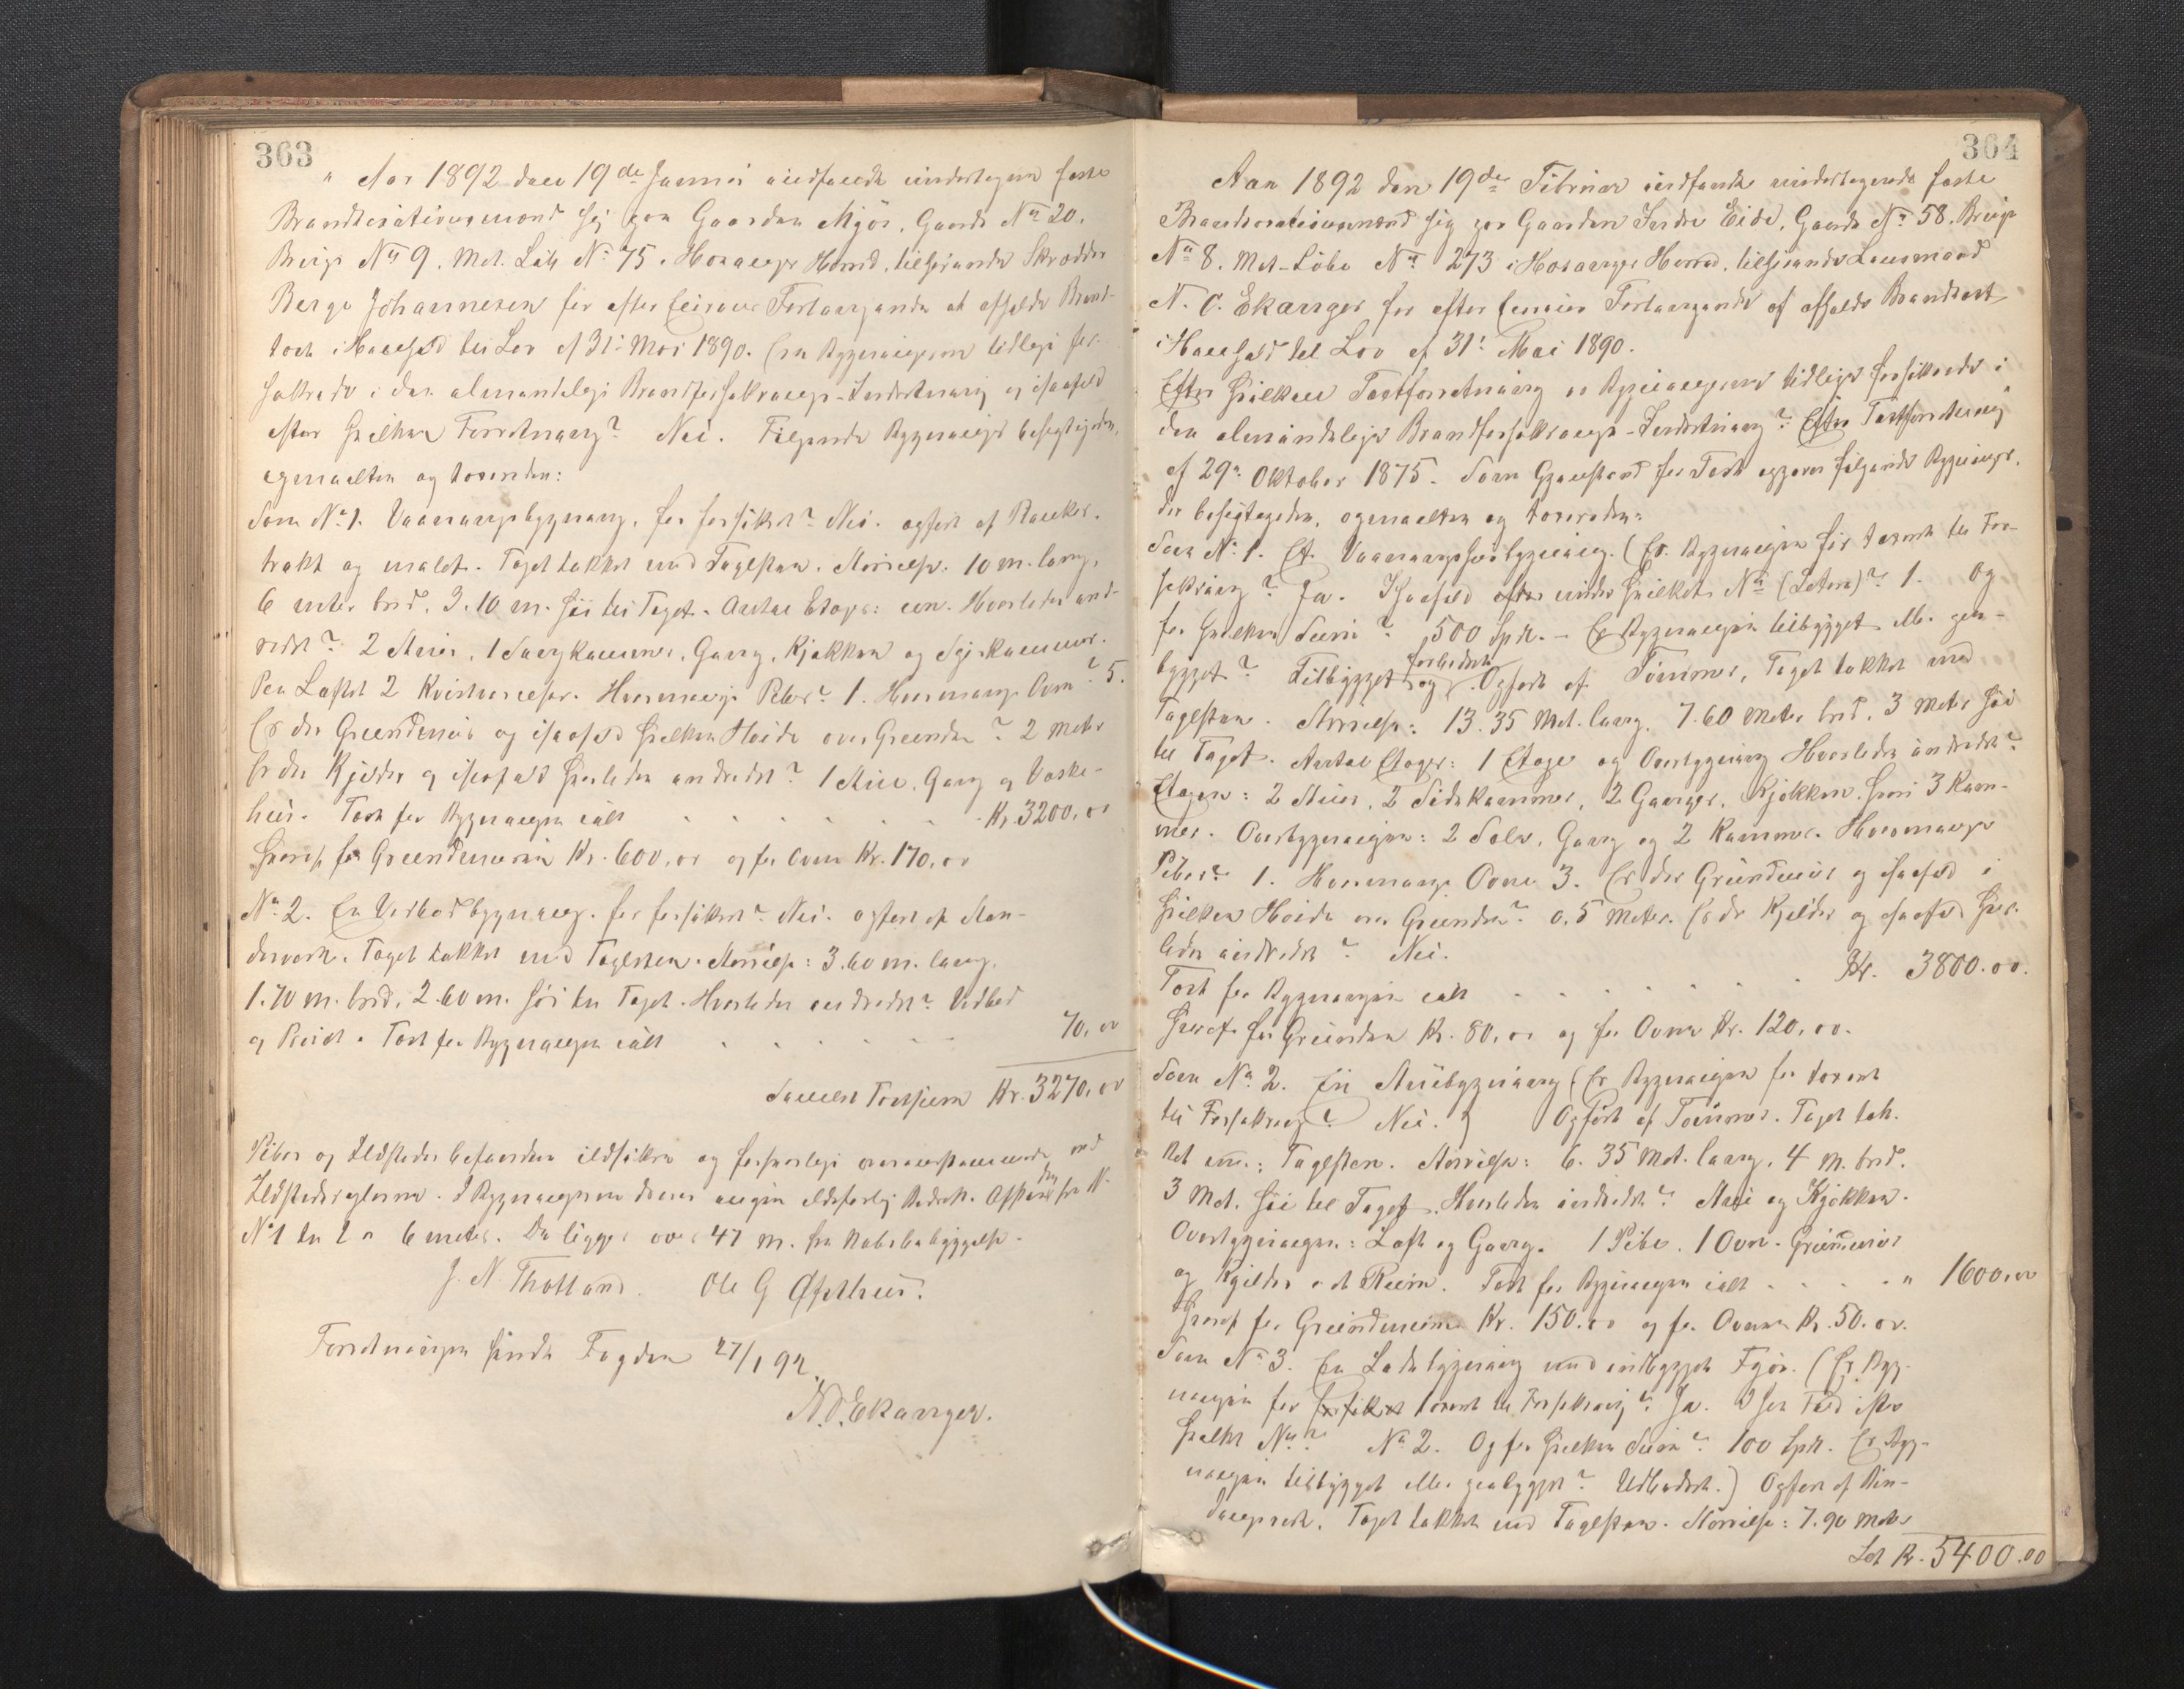 363
Aar 1892 den 19de Januar indfandt undertegnede faste
Brandtaxationsmænd sig paa Gaarden Mjøs, Gaards No 20,
Brugs No 9, Mat. Løb No 75 i Hosanger Herred, tilhørende Skrædder
Berge Johannesen for efter hans Forlangende at afholde Brand-
taxt i Henhold til Lov af 31te Mai 1890. Er Bygningerne tidligere for-
sikrede i den almindelige Brandforsikrings-Indretning og isaafald
efter hvilken Forretning? Nei. Følgende Bygninger besigtigedes,
opmaaltes og taxeredes:
Som No 1. Vaaningsbygning, før forsikret? Nei. opført af Planker,
trukt og malet. Taget tækket med Taglsten. Størrelse: 10 m. lang,
6 meter bred, 3.10 m. høi til Taget. Antal Etager: een. Hvorledes ind-
redet? 2 Stuer, 1 Sengkammer, Gang, Kjøkken og Spiskammer.
Paa Loftet 2 Kvistværelser. Hvormange Piber? 1. Hvormange Ovne? 5.
Er der Grundmur og isaafald hvilken Høide over Grunden? 2 Meter
Er der Kjelder og isaafald hvorledes indredet? 1 Stue, Gang og Vaske-
hus. Taxt for Bygningen ialt . . . . . . . Kr. 3200,00
Hvoraf for Grundmuren Kr. 600,00 og for Ovne Kr. 170,00
No 2. En Vedbodbygning. før forsikret? Nei. opført af Sten-
derverk. Taget tækket med Taglsten. Størrelse: 3.60 m. lang,
1.70 m. bred, 2.60 m. høi til Taget. Hvorledes indredet? Vedbod
og Privet. Taxt for Bygningen ialt . . . . . . 70,00
Samlet Taxtsum Kr. 3270,00
Piber og Ildsteder befandtes ildsikre og forsvarlige overensstemmende med
Ildstedsreglerne. I Bygningerne drives ingen ildsfarlig Bedrift. Afstanden fra
No 1 til 2 er 6 meter. De ligger over 47 m. fra Nabobebyggelse.
J. N. Tholland. Ole G Øpthun.
Forretningen sendt Fogden 27/1 92.
N. O. Ekanger.
364
Aar 1892 den 19de Februar indfandt undertegnede faste
Brandtaxationsmænd sig paa Gaarden Indre Eide, Gaards No 58, Brugs
No 8, Mat-Løbe No 273 i Hosanger Herred, tilhørende Lensmand
N. O. Ekanger for efter hans Forlangende at afholde Brandtaxt
i Henhold til Lov af 31te Mai 1890.
Efter hvilken Taxtforretning er Bygningerne tidligere forsikrede i
den almindelige Brandforsikrings-Indretning? Efter Taxtforretning
af 29de Oktober 1875. Som Gjenstand for Taxt opgaves følgende Bygninger,
der besigtigedes, opmaaltes og taxeredes:
Som No 1. Et Vaaningshusbygning. (Er Bygningen før taxeret til For-
sikring? Ja. Isaafald efter under hvilket No (Litera)? 1. Og
for hvilken Sum? 500 Spd. - Er Bygningen tilbygget eller paa-
bygget? Tilbygget og forbedret. Opført af Tømmer, Taget tækket med
Taglsten. Størrelse: 13.35 Met. lang, 7.60 Meter bred, 3 Meter høi
til Taget. Antal Etager: 1 Etage og Overbygning Hvorledes indredet?
Etagen: 2 Stuer, 2 Sidekammer, 2 Gange, Kjøkken, hvori 3 Kam-
mer. Overbygningen: 2 Sale, Gang og 2 Kammer. Hvormange
Piber? 1. Hvormange Ovne 3. Er der Grundmur og isaafald i
hvilken Høide over Grunden? 0,5 Meter. Er der Kjelder og isaafald hvor-
ledes indredet? Nei.
Taxt for Bygningen ialt . . . . . . . Kr. 3800.00.
Hvoraf for Grunden Kr. 80,00 og for Ovne Kr. 120,00.
Som No 2. En Stuebygning (Er Bygningen før taxeret
til Forsikring? Nei.) Opført af Tømmer. Taget tæk-
ket m.: Taglsten. Størrelse: 6.35 Met. lang, 4 M. bred.
3 Met. høi til Taget. Hvorledes indredet? Stue og Kjøkken.
Overbygningen: Loft og Gang. 1 Pibe. 1 Ovn. Grundmur
og Kjelder i et Rum. Taxt for Bygningen ialt . . . . " 1600,00
Hvoraf for Grundmuren Kr. 150.00 og for Ovnen Kr. 50.00.
Som No 3. En Ladebygning med indbygget Fjøs. (Er Byg-
ningen før forsikret taxeret til Forsikring? Ja. I saa Fald efter
hvilket No? No 2. Og for hvilken Sum? 100 Spd. Er Byg-
ningen tilbygget eller paabygget? Udbedret.) Opført af Bin-
dingsverk. Taget tækket med Taglsten. Størrelse: 7.90 Meter
Lat Kr. 5400.00